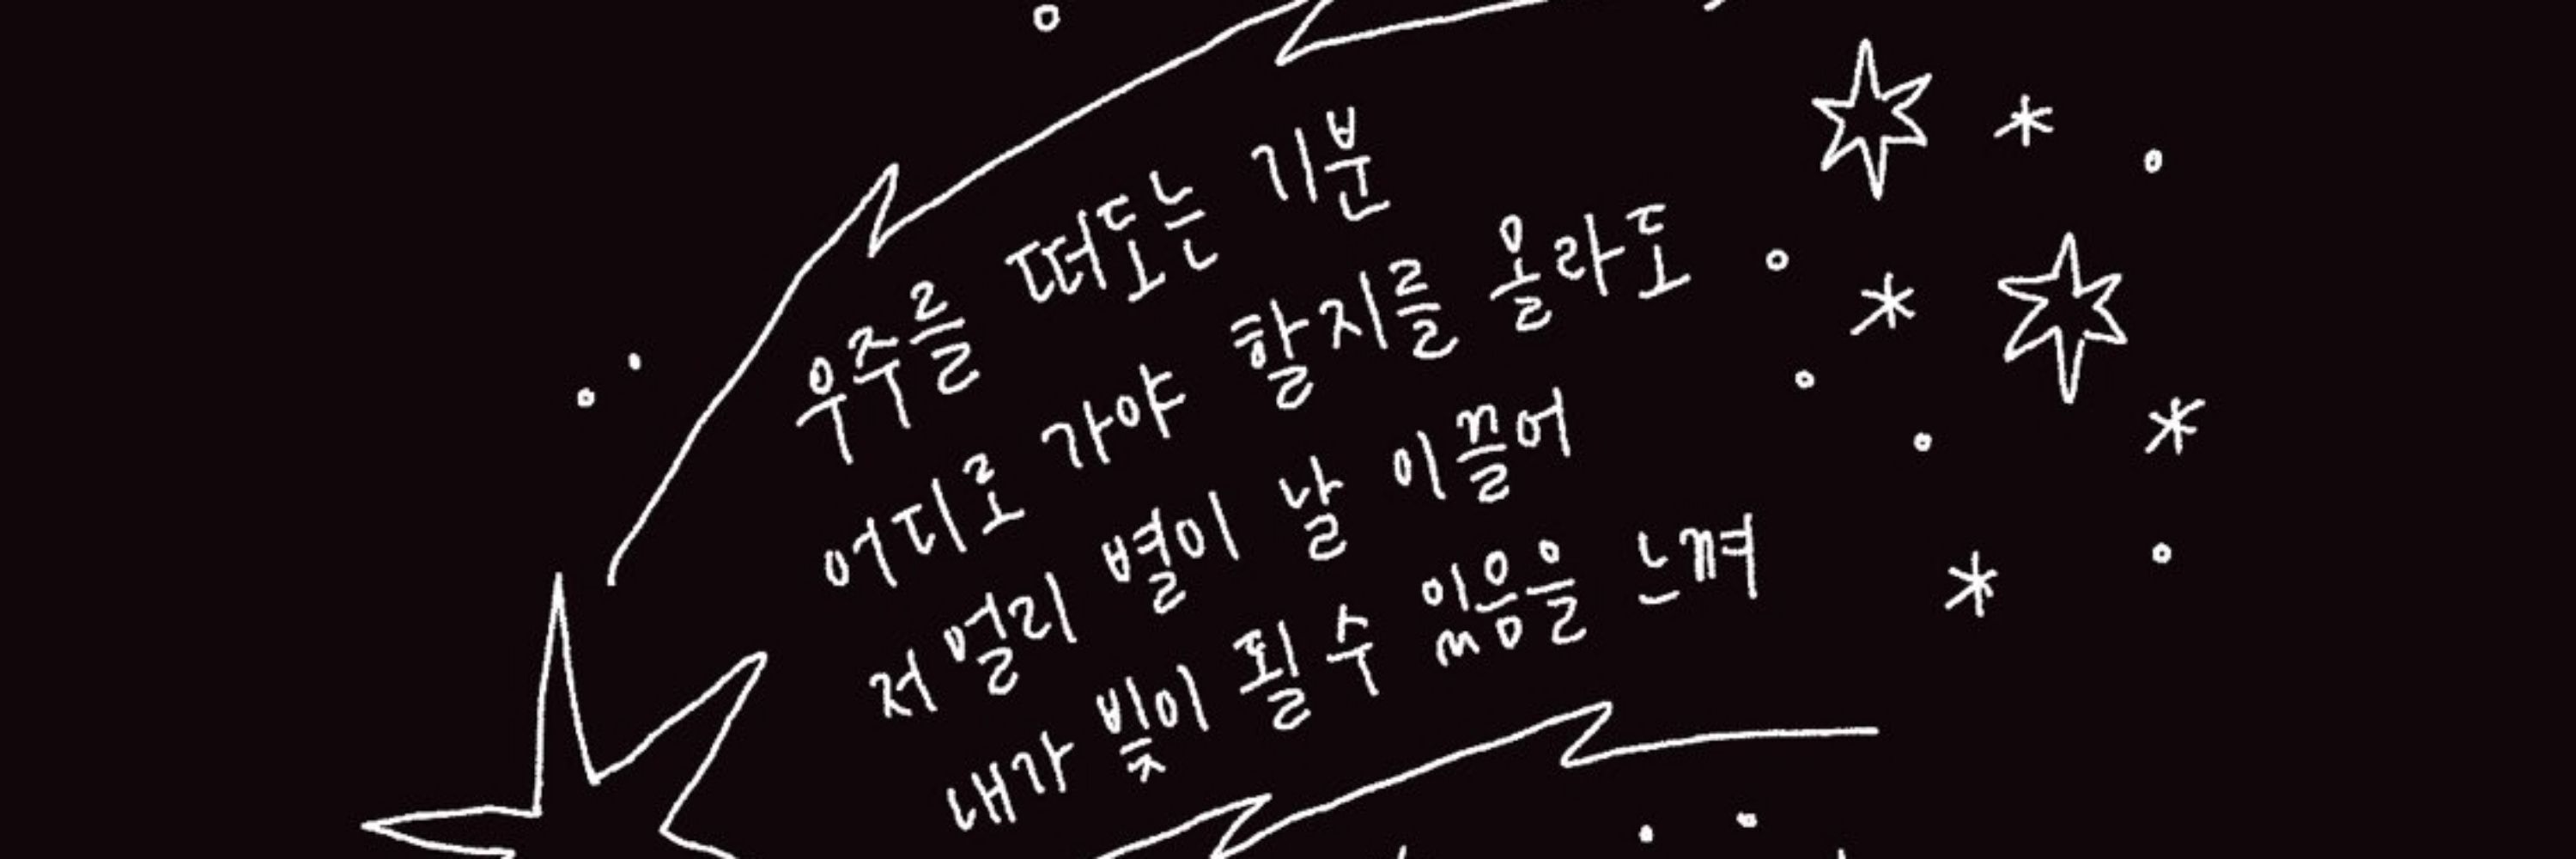 우주를 떠도는 기분
어디로 가야 할지를 몰라도
저 멀리 별이 날 이끌어
내가 빛이 될 수 있음을 느껴